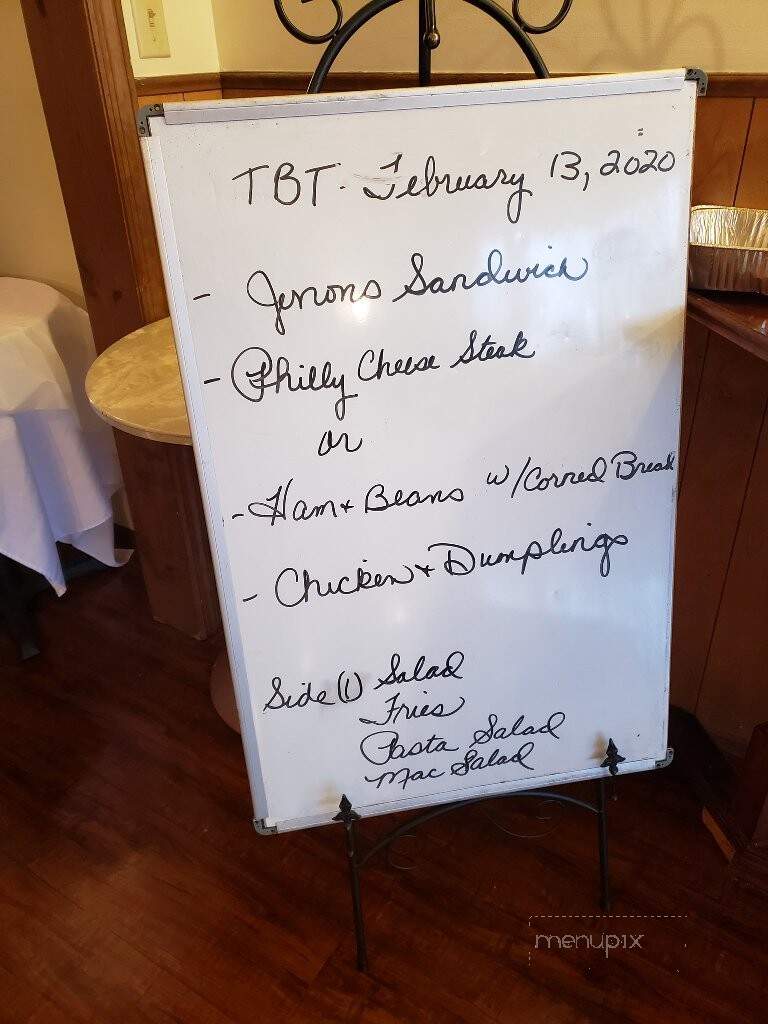 TBT. February 13, 2020
- Jenons Sandwich
- Philly Cheese Steak
or
- Ham + Beans w/Corned Bread
- Chicken + Dumplings
Side (1) Salad
Fries
Pasta Salad
Mac Salad
menupix